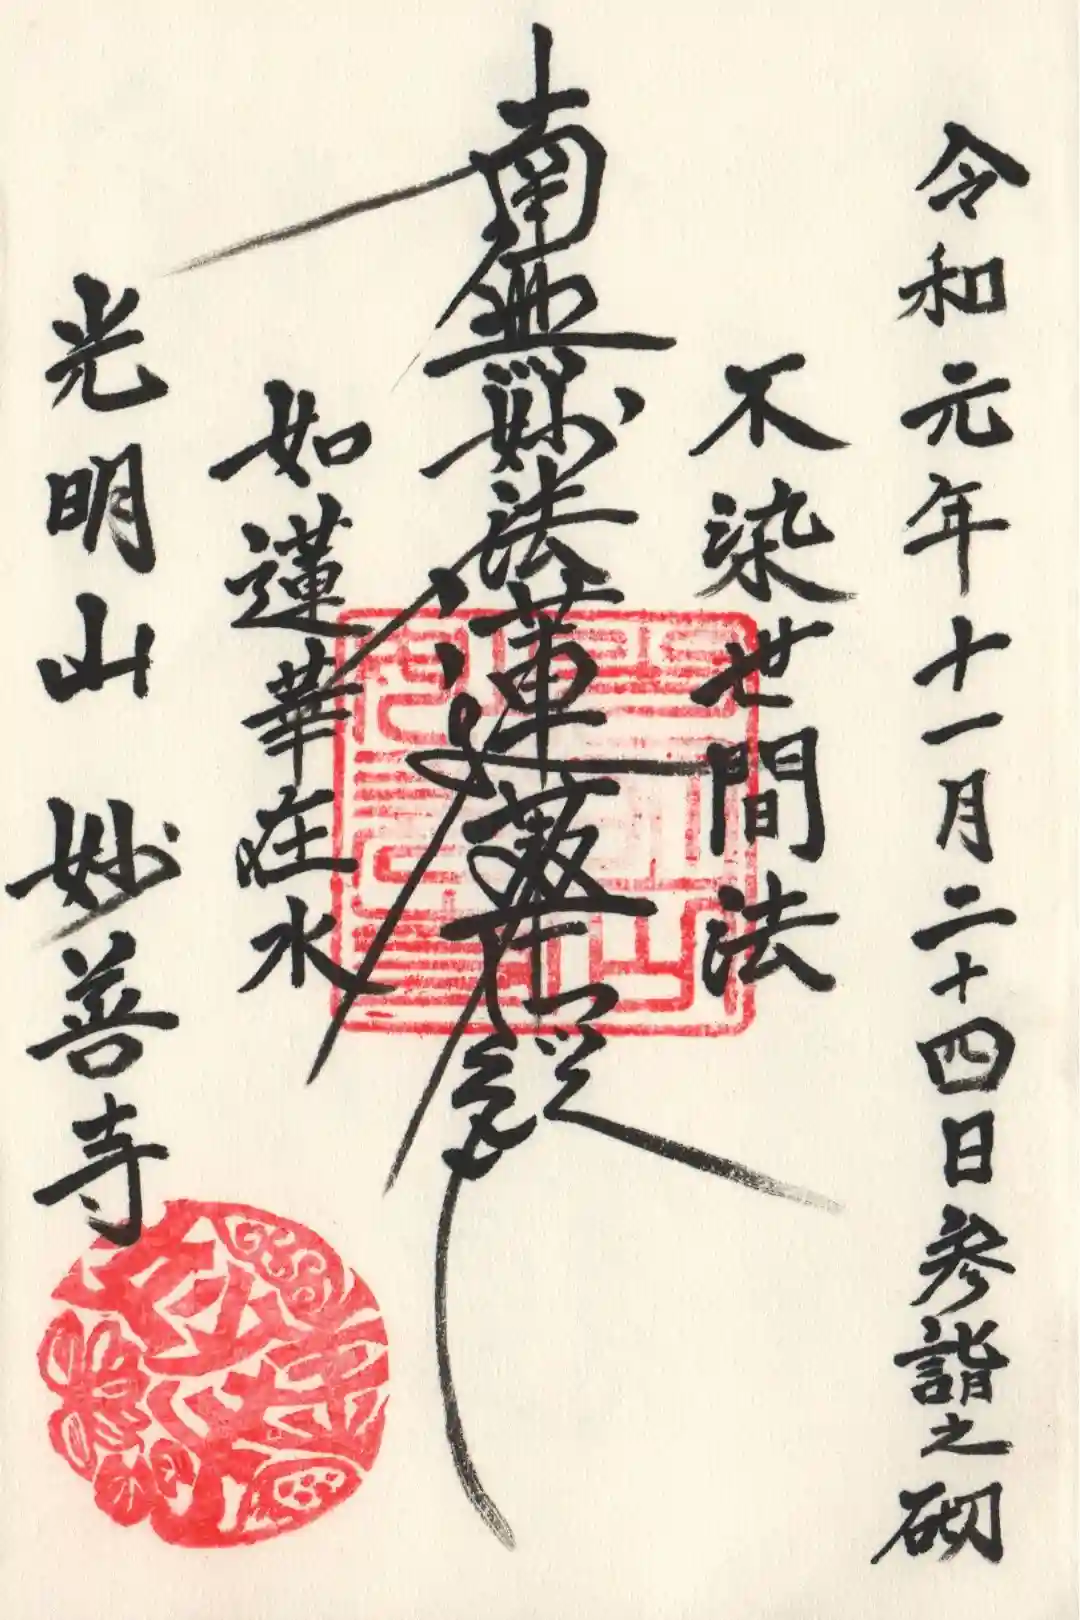 令和元年十一月二十四日参詣之砌
不染世間法
南無妙法蓮華経
如蓮華在水
光明山 妙善寺